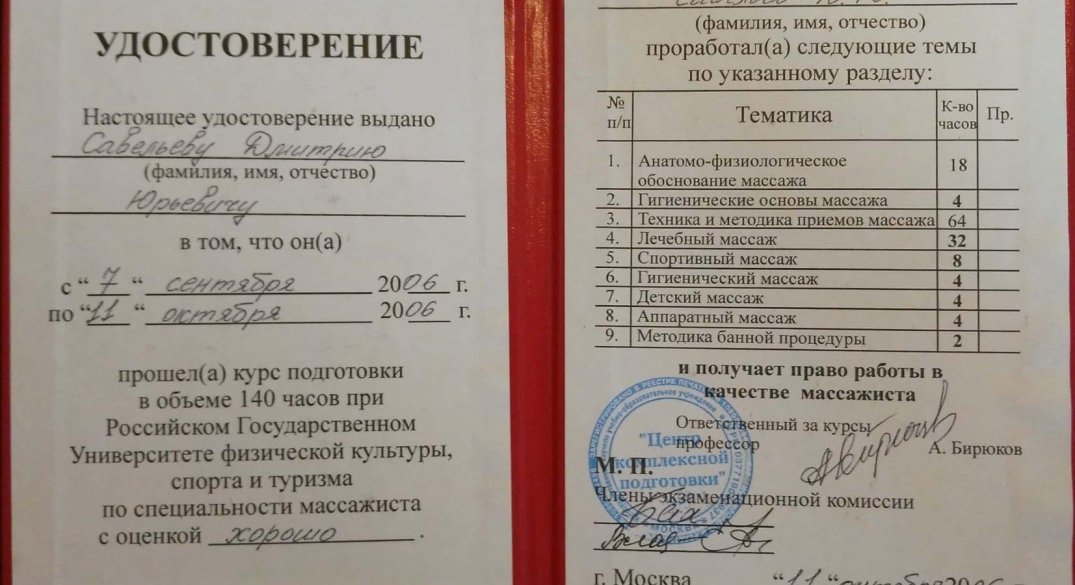 УДОСТОВЕРЕНИЕ
Настоящее удостоверение выдано
Савельеву Дмитрию
(фамилия, имя, отчество)
Юрьевичу
в том, что он(а)
с "7" сентября 2006 г.
по "11" октября 2006 г.
прошел(а) курс подготовки
в объеме 140 часов при
Российском Государственном
Университете физической культуры,
спорта и туризма
по специальности массажиста
с оценкой хорошо.
(фамилия, имя, отчество)
проработал(а) следующие темы
по указанному разделу:
№ п/п Тематика К-во часов Пр.
1. Анатомо-физиологическое обоснование массажа 18
2. Гигиенические основы массажа 4
3. Техника и методика приемов массажа 64
4. Лечебный массаж 32
5. Спортивный массаж 8
6. Гигиенический массаж 4
7. Детский массаж 4
8. Аппаратный массаж 4
9. Методика банной процедуры 2
и получает право работы в
качестве массажиста
Ответственный за курсы
профессор А. Бирюков
"Центр
комплексной
подготовки"
М. П.
Члены экзаменационной комиссии
г. Москва "11" октября 2006